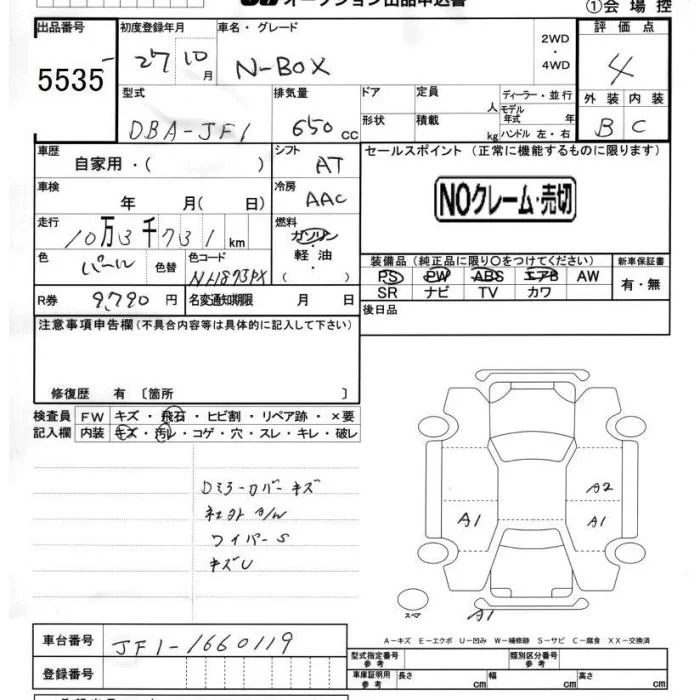 オークション出品申込書
①会場控
出品番号 初度登録年月 車名・グレード 2WD・4WD 評価点
5535 27 10月 N-BOX 4
型式 排気量 ドア 定員 人 ディーラー・並行 外装 内装
DBA-JF1 650cc 形状 積載 kg モデル年式 年 ハンドル 左・右 B C
車歴 自家用・( ) シフト AT セールスポイント(正常に機能するものに限ります)
車検 年 月( 日) 冷房 AAC NOクレーム・売切
走行 10万3千731km 燃料 ガソリン・軽油・( )
色 パール 色替 色コード NH873PX
装備品(純正品に限り○をつけてください) 新車保証書
PS PW ABS エアB AW 有・無
SR ナビ TV カワ
R券 9,790円 名変通知期限 月 日 後日品
注意事項申告欄(不具合内容等は具体的に記入して下さい)
修復歴 有〔箇所 〕
検査員 FW キズ・飛石・ヒビ割・リペア跡・×要
記入欄 内装 キズ・汚レ・コゲ・穴・スレ・キレ・破レ
Dミラーカバーキズ
社外A/W
ワイパーS
キズU
A2
A1 A1
スペア
A1
A-キズ E-エクボ U-凹み W-補修跡 S-サビ C-腐食 XX-交換済
車台番号 JF1-1660119
型式指定番号 参考 類別区分番号 参考
登録番号 車庫証明用 参考 長さ cm 幅 cm 高さ cm